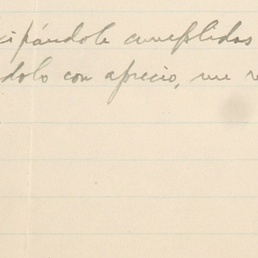 cipándole cumplidas
dolo con aprecio, me